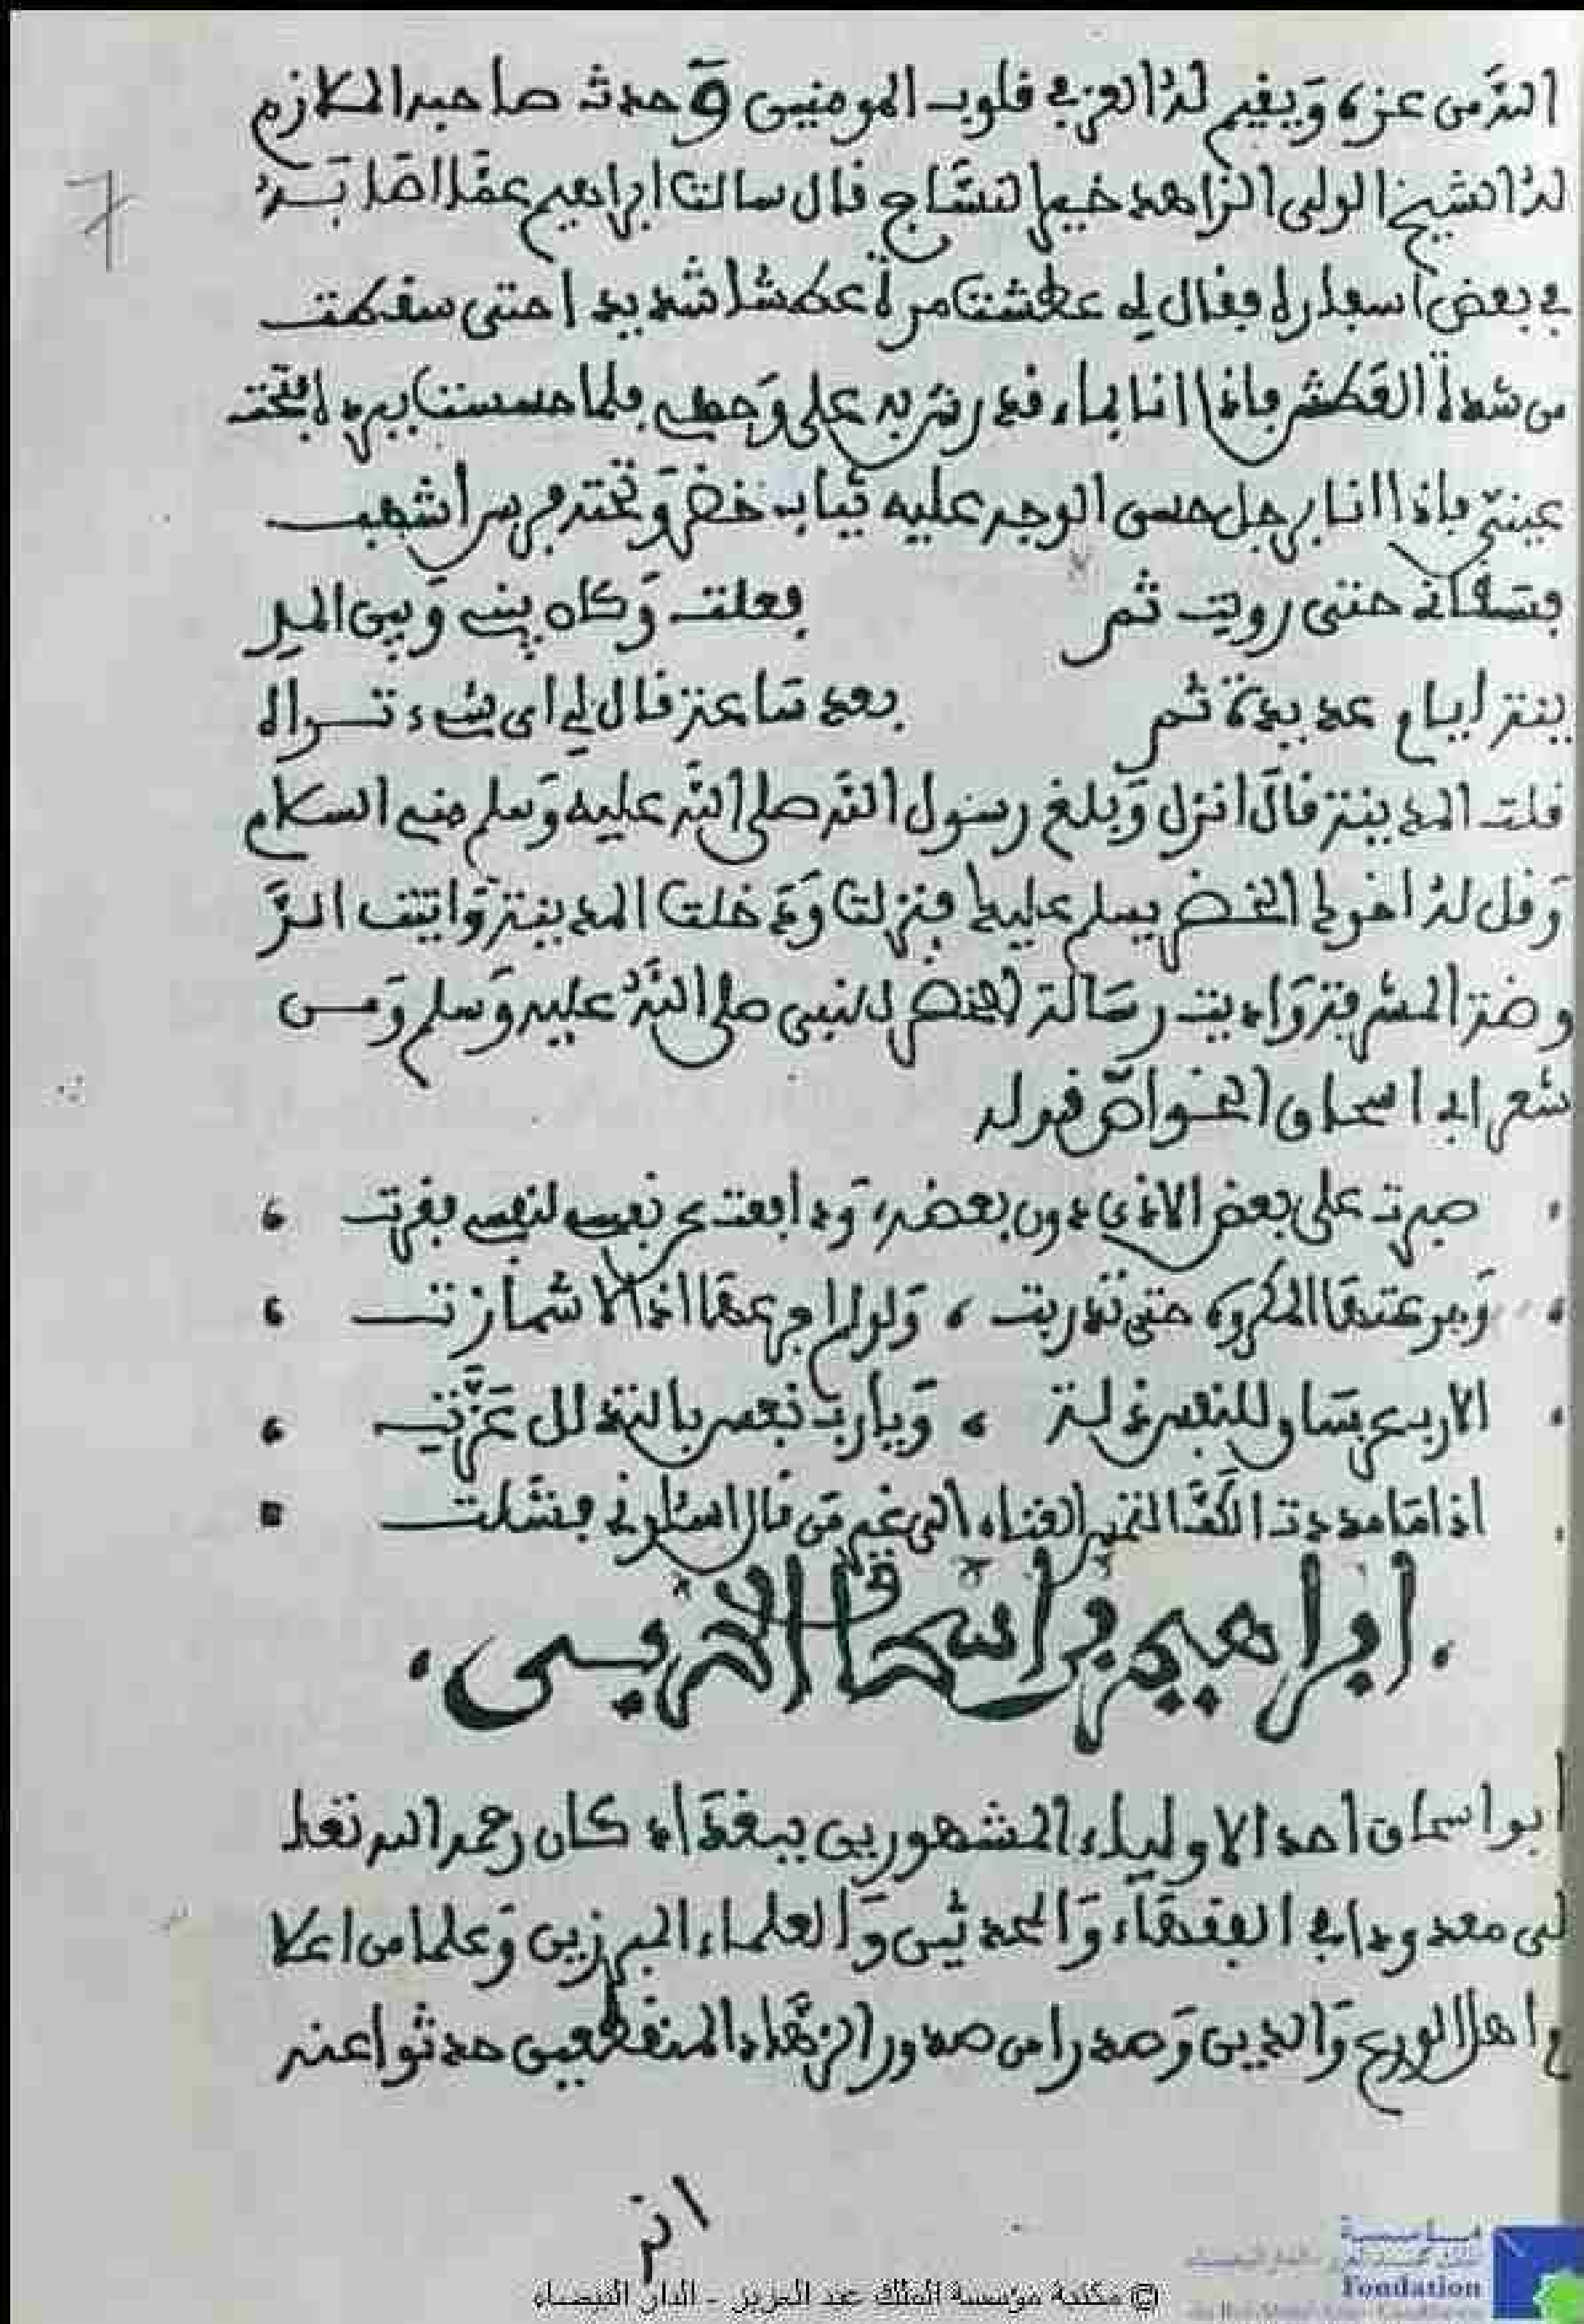 الله من عزه ويقيم له العز في قلوب المومنين وحدث صاحبه الملازم
له الشيخ الولي الزاهد خير النساج قال سالت ابراهيم عما اصابه
في بعض اسفاره فقال لي عطشت مرة عطشا شديدا حتى سقطت
من شدة العطش فاذا انا بماء قد رش به على وجهي فلما حسست ببرده فتحت
عيني فاذا انا برجل حسن الوجه عليه ثياب خضر وتحته فرس اشهب
فسقاني حتى رويت ثم
فعلت وكان بيني وبين المد
ينة ايام عديدة ثم
بعد ساعة قال لي اي شيء تراه
قلت المدينة قال انزل وبلغ رسول الله صلى الله عليه وسلم مني السلام
وقل له اخوك الخضر يسلم عليك فنزلت ودخلت المدينة واتيت الر
وضة المشرفة واديت رسالة الخضر للنبي صلى الله عليه وسلم ومن
شعر ابي اسحاق الخواص قوله
صبرت على بعض الاذى دون بعضه، ودافعت عن نفسي لنفسي فقرت
وجرعتها المكروه حتى تدربت ، ولو لم اجرعها اذا لاشمازت
الا رب عيش ساق للنفس ذلة ، ويا رب نفس بالتذلل عزت
اذا ما مددت الكف التمس الغناء الى غير من قال اسئلوني فشلت
ابراهيم بن اسحاق
ابو اسحاق احد الاولياء المشهورين ببغداد كان رحمه الله تعا
لى معدودا في الفقهاء والمحدثين والعلماء المبرزين وعلما من اعلا
م اهل الورع والدين وصدرا من صدور الزهاد المنقطعين حدثوا عنه
انه
© مكتبة مؤسسة الملك عبد العزيز - الدار البيضاء
مؤسسة
Fondation
7